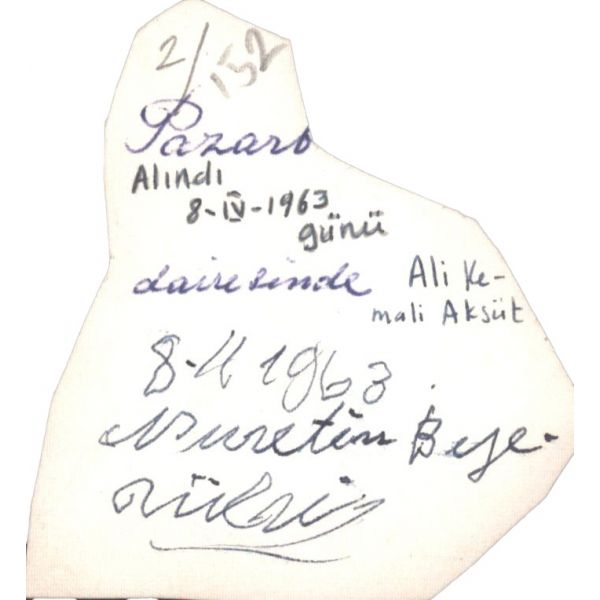 2/152
Pazarb
Alındı
8-IV-1963
günü
dairesinde
Ali Ke-
mali Aksüt
8-4 1963.
Nuretin Beye.